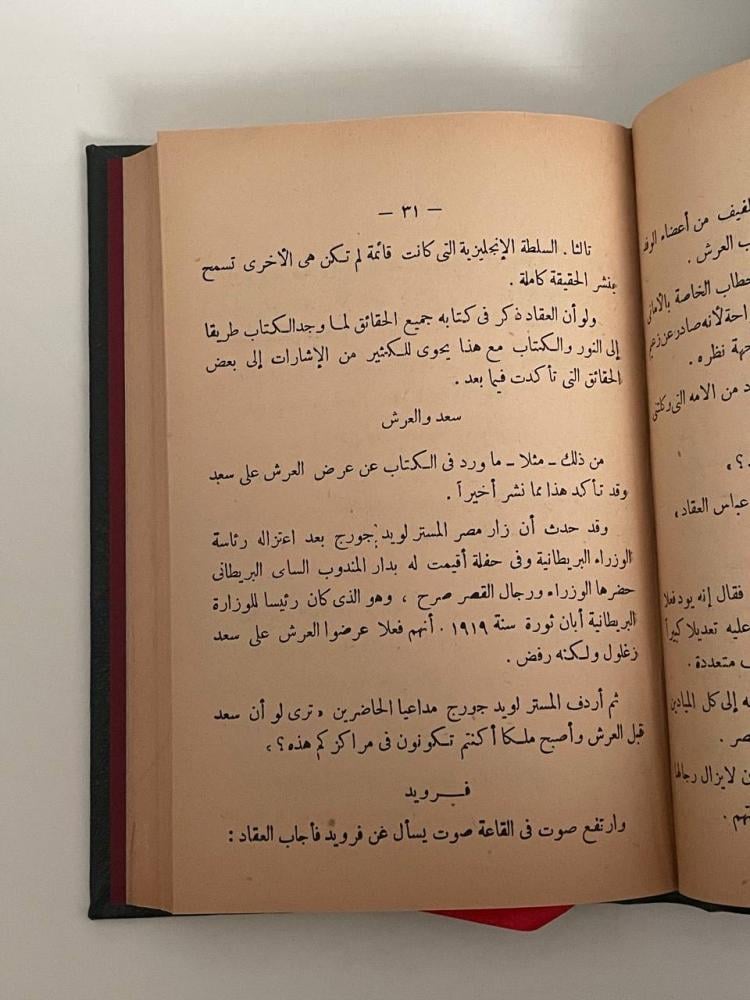 — ٣١ —
ثالثا. السلطة الإنجليزية التى كانت قائمة لم تكن هى الأخرى تسمح
بنشر الحقيقة كاملة .
ولو أن العقاد ذكر فى كتابه جميع الحقائق لما وجد الكتاب طريقا
إلى النور والكتاب مع هذا يحوى للكثير من الإشارات إلى بعض
الحقائق التى تأكدت فيما بعد .
سعد والعرش
من ذلك ـ مثلا ـ ما ورد فى الكتاب عن عرض العرش على سعد
وقد تأكد هذا مما نشر أخيراً .
وقد حدث أن زار مصر المستر لويد جورج بعد اعتزاله رئاسة
الوزراء البريطانية وفى حفلة أقيمت له بدار المندوب السامى البريطانى
حضرها الوزراء ورجال القصر صرح ، وهو الذى كان رئيسا للوزارة
البريطانية أبان ثورة سنة ١٩١٩ . أنهم فعلا عرضوا العرش على سعد
زغلول ولكنه رفض .
ثم أردف المستر لويد جورج مداعبا الحاضرين « ترى لو أن سعد
قبل العرش وأصبح ملكا أكنتم تكونون فى مراكزكم هذه ؟ »
فرويد
وارتفع صوت فى القاعة صوت يسأل عن فرويد فأجاب العقاد :
من أعضاء الوفد
العرش .
الخاصة بالأمانى
لأنه صادر عن زعيم
وجهة نظره .
من الامه التى وكلتنى
؟ »
عباس العقاد ،
فقال إنه يود فعلا
عليه تعديلا كبيراً
متعددة .
إلى كل الميادين
لا يزال رجالها